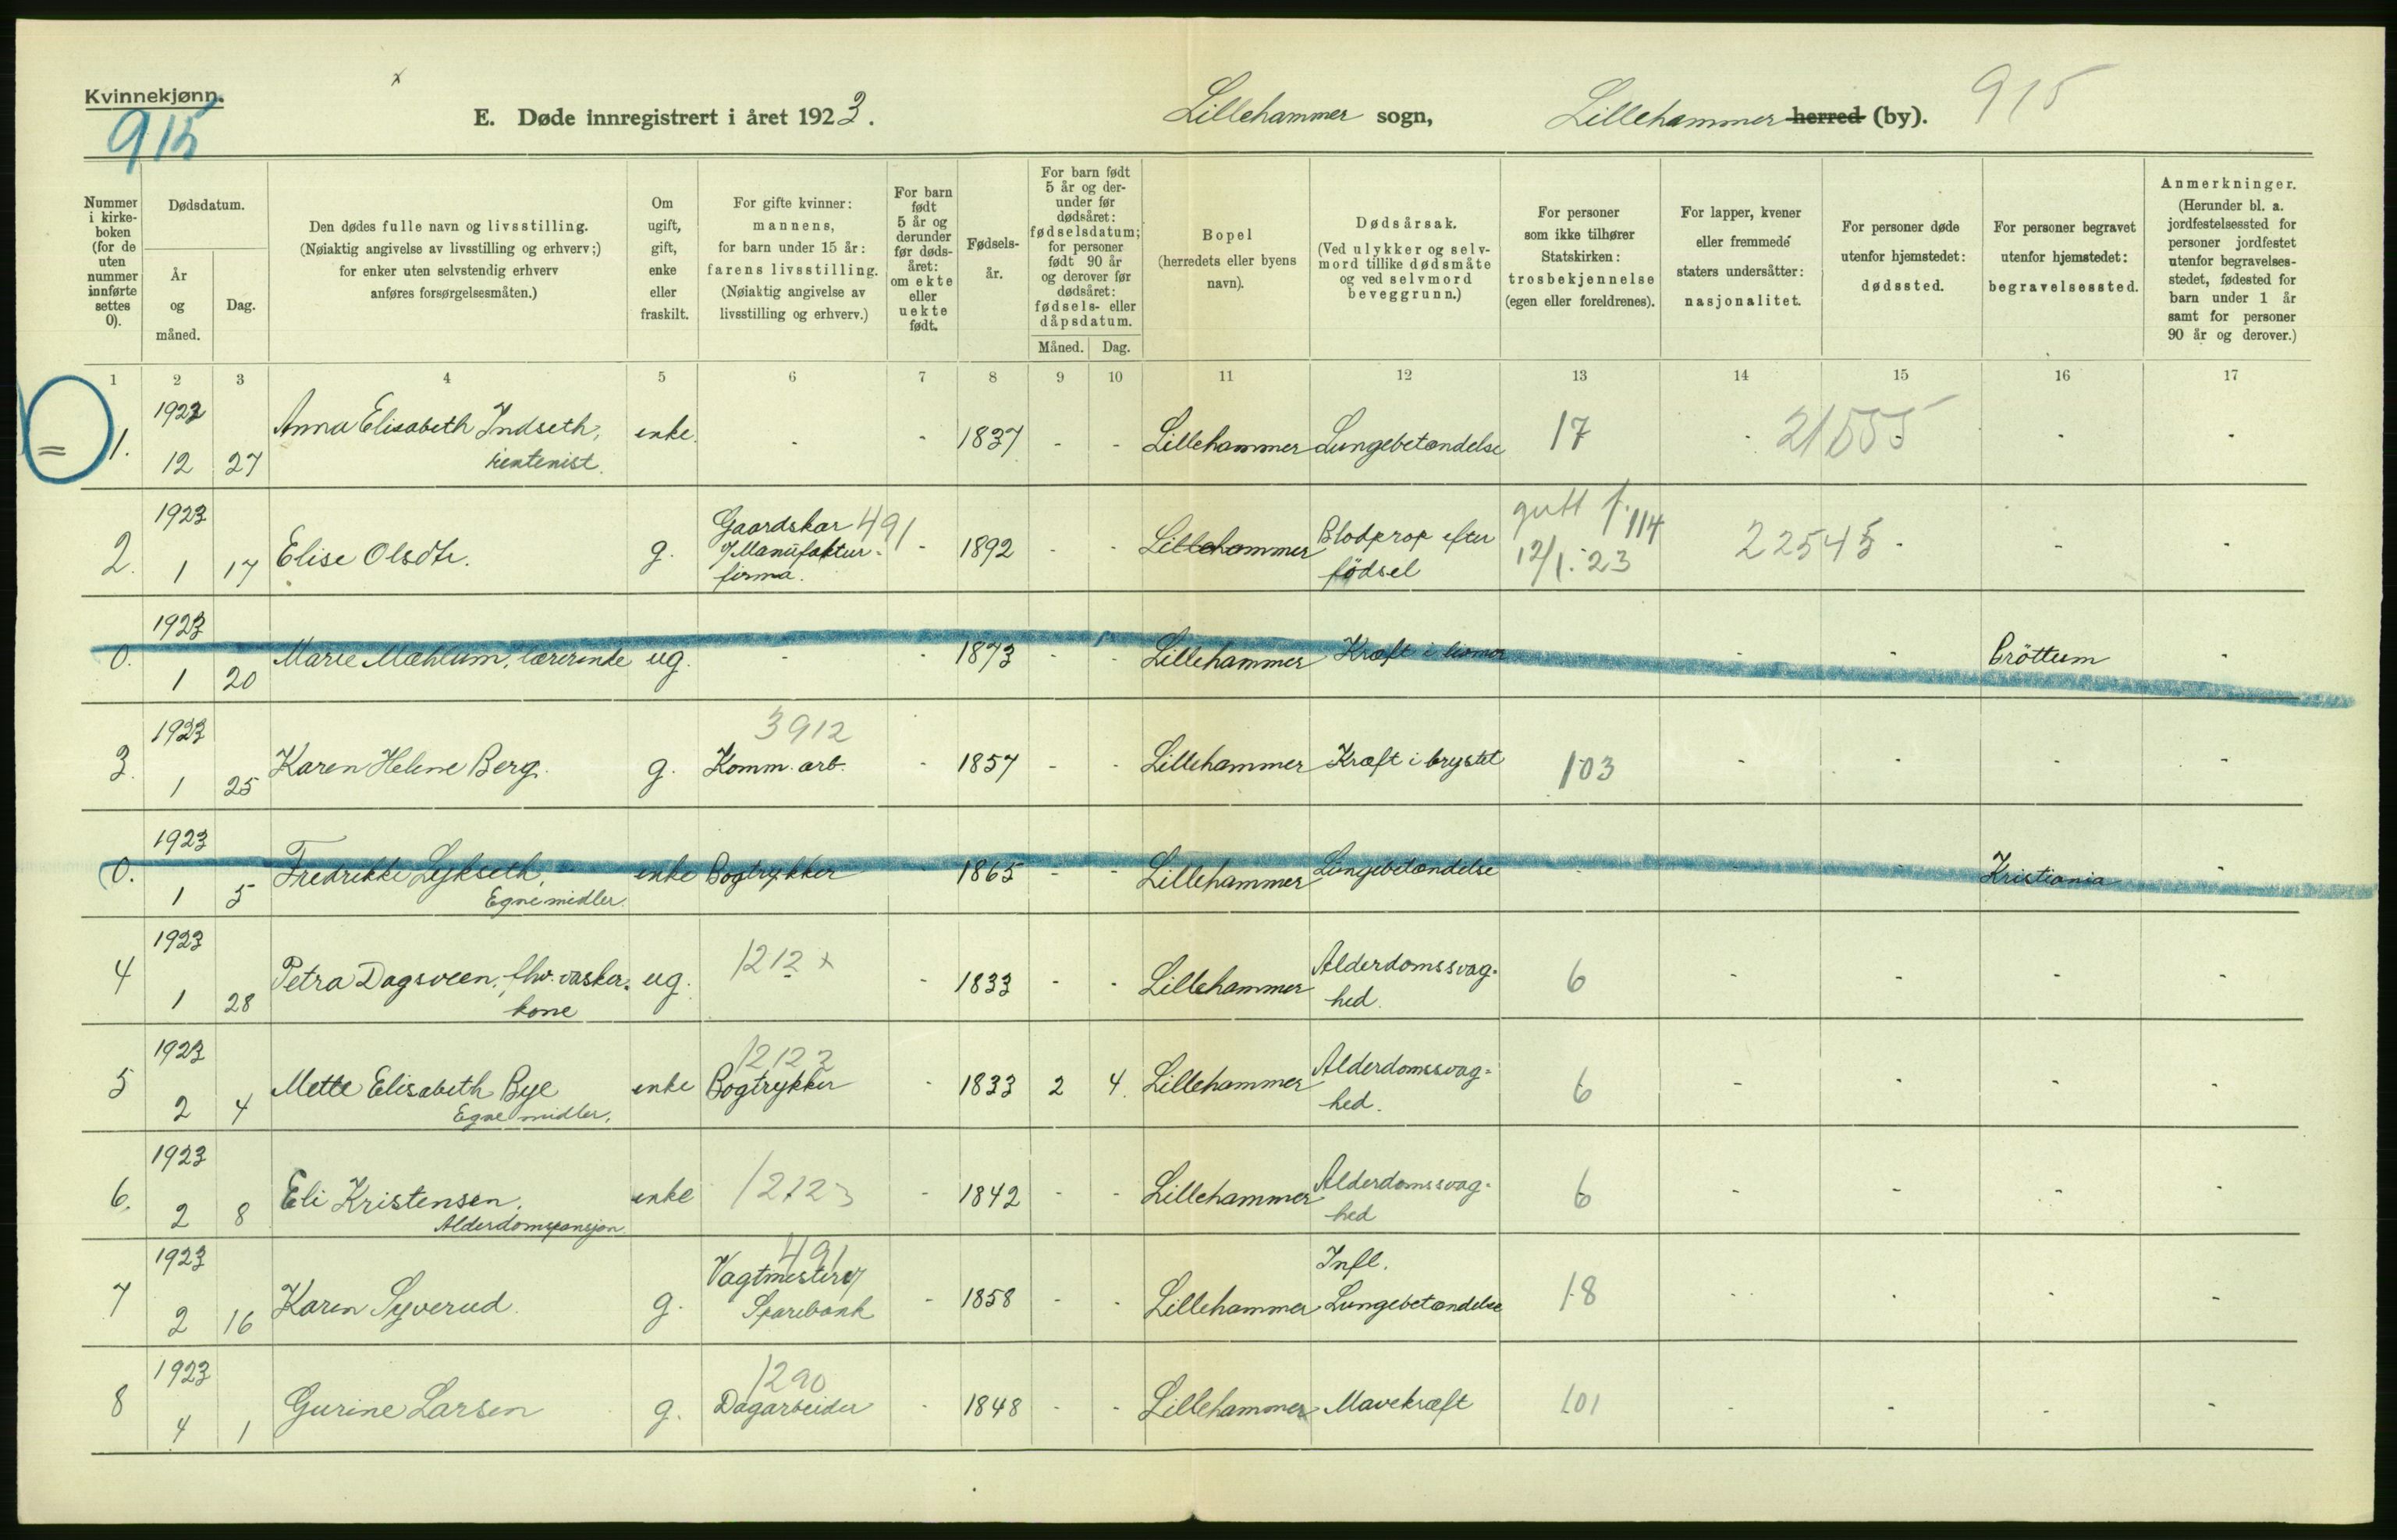 Kvinnekjønn.
915
E. Døde innregistrert i året 1923.
Lillehammer sogn,
Lillehammer herred (by).
915
Nummer i kirke-boken (for de uten nummer innførte settes 0).
Dødsdatum.
År og måned.
Dag.
Den dødes fulle navn og livsstilling.
(Nøiaktig angivelse av livsstilling og erhverv;)
for enker uten selvstendig erhverv
anføres forsørgelsesmåten.)
Om ugift, gift, enke eller fraskilt.
For gifte kvinner:
mannens,
for barn under 15 år:
farens livsstilling.
(Nøiaktig angivelse av
livsstilling og erhverv.)
For barn født 5 år og derunder før døds-året: om ekte eller uekte født.
Fødsels-år.
For barn født 5 år og der-under før dødsåret: fødselsdatum; for personer født 90 år og derover før dødsåret: fødsels- eller dåpsdatum.
Måned.
Dag.
Bopel
(herredets eller byens
navn).
Dødsårsak.
(Ved ulykker og selv-
mord tillike dødsmåte
og ved selvmord
beveggrunn.)
For personer
som ikke tilhører
Statskirken:
trosbekjennelse
(egen eller foreldrenes).
For lapper, kvener
eller fremmede
staters undersåtter:
nasjonalitet.
For personer døde
utenfor hjemstedet:
dødssted.
For personer begravet
utenfor hjemstedet:
begravelsessted.
Anmerkninger.
(Herunder bl. a.
jordfestelsessted for
personer jordfestet
utenfor begravelses-
stedet, fødested for
barn under 1 år
samt for personer
90 år og derover.)
1 2 3 4 5 6 7 8 9 10 11 12 13 14 15 16 17
1. 1922 12 27 Anna Elisabeth Indseth, rentenist. enke. - - 1837 - - Lillehammer Lungebetændelse 17 - 21555 - -
2. 1923 1 17 Elise Olsdtr. g. Gaardskar 491 i/ Manufaktur-firma. - 1892 - - Lillehammer Blodprop efter födsel gutt f. 114 12/1.-23 22545 - - -
0. 1923 1 20 Marie Mæhlum, lærerinde ug. - - 1873 - - Lillehammer Kræft i - - Bröttum -
3. 1923 1 25 Karen Helene Berg. g. 3912 Komm. arb. - 1857 - - Lillehammer Kræft i brystet 103 - - - -
0. 1923 1 5 Fredrikke Lykseth, Egne midler. enke Bogtrykker - 1865 - - Lillehammer Lungebetændelse - - - Kristiania -
4 1923 1 28 Petra Dagsveen, fhv. vaske-kone ug. 1212 x - - 1833 - - Lillehammer Alderdomssvag-hed. 6 - - - -
5 1923 2 4 Mette Elisabeth Bye Egne midler. enke 12122 Bogtrykker - 1833 2 4. Lillehammer Alderdomssvag-hed. 6 - - - -
6. 1923 2 8 Eli Kristensen, Alderdomspensjon enke 12123 - 1842 - - Lillehammer Alderdomssvag-hed 6 - - - -
7 1923 2 16 Karen Syverud. g. 491 Vagtmester v/ Sparebank - 1858 - - Lillehammer Infl. Lungebetændelse 18 - - - -
8 1923 4 1 Gurine Larsen g. 1290 Dagarbeider - 1848 - - Lillehammer Mavekræft 101 - - - -